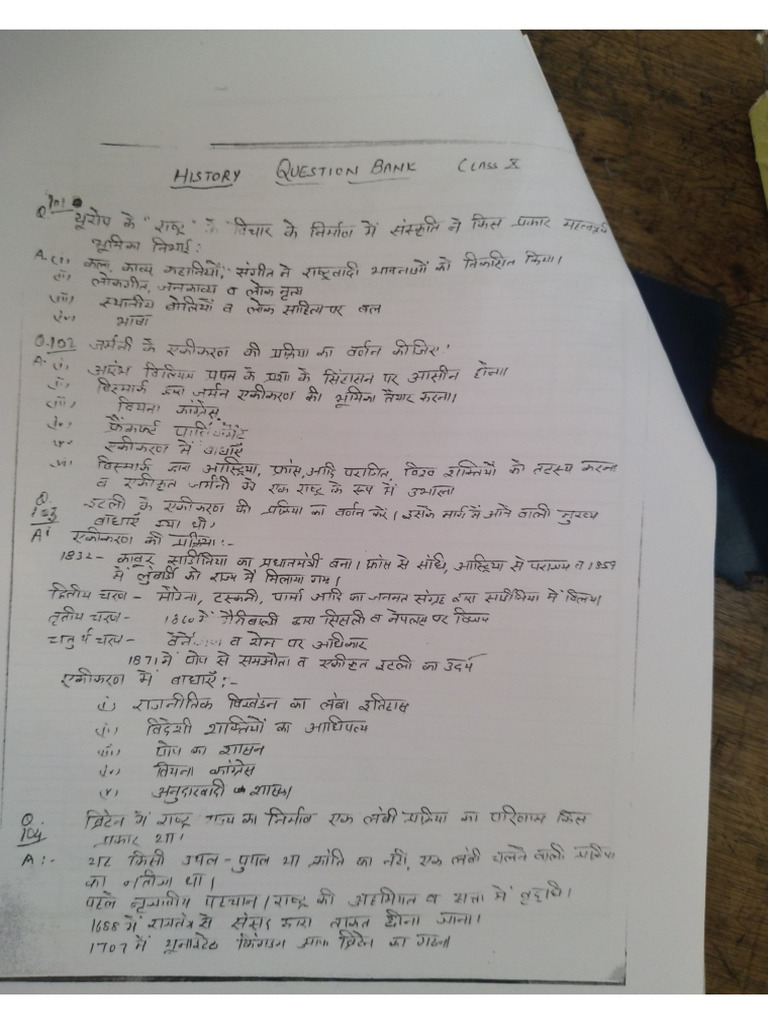 HISTORY QUESTION BANK CLASS X
Q. 101 यूरोप के "राष्ट्र" के विचार के निर्माण में संस्कृति ने किस प्रकार महत्वपूर्ण
भूमिका निभाई:
A. (i) कला, काव्य कहानियों, संगीत ने राष्ट्रवादी भावनाओं को विकसित किया।
(ii) लोकगीत, जनकाव्य व लोक नृत्य
(iii) स्थानीय बोलियों व लोक साहित्य पर बल
(iv) भाषा
Q.102 जर्मनी के एकीकरण की प्रक्रिया का वर्णन कीजिए
A. (i) आरंभ विलियम प्रथम के प्रशा के सिंहासन पर आसीन होना।
(ii) बिस्मार्क द्वारा जर्मन एकीकरण की भूमिका तैयार करना।
(iii) वियना कांग्रेस,
(iv) फ्रैंकफर्ट पार्लियामेंट
(v) एकीकरण में बाधाएँ
(vi) बिस्मार्क द्वारा आस्ट्रिया, फ्रांस, आदि पराजित, विश्व शक्तियों को तटस्थ करना
व एकीकृत जर्मनी को एक राष्ट्र के रूप में उभालना
Q. 103 इटली के एकीकरण की प्रक्रिया का वर्णन करें। इसके मार्ग में आने वाली मुख्य
बाधाएँ क्या थी।
A: एकीकरण की प्रक्रिया:-
1832- काबूर सार्डिनिया का प्रधानमंत्री बना। फ्रांस से संधि, आस्ट्रिया से पराजय व 1859
में लुंबार्डी को राज्य में मिलाया गया।
द्वितीय चरण - मोडेना, टस्कनी, पार्मा आदि का जनमत संग्रह द्वारा सार्डीनिया में विलय।
तृतीय चरण - 1860 में गैरीबाल्डी द्वारा सिसली व नेपल्स पर विजय
चतुर्थ चरण - व रोम पर अधिकार
1871 में पोप से समझौता व एकीकृत इटली का उदय
एकीकरण में बाधाएँ:-
(i) राजनीतिक विखंडन का लंबा इतिहास
(ii) विदेशी शक्तियों का आधिपत्य
(iii) पोप का शासन
(iv) वियना कांग्रेस
(v) अनुदारवादी शासक
Q. 104 ब्रिटेन में राष्ट्र राज्य का निर्माण एक लंबी प्रक्रिया का परिणाम किस
प्रकार था।
A:- यह किसी उथल-पुथल या क्रांति का नहीं, एक लंबी चलने वाली प्रक्रिया
का नतीजा था।
पहले नृजातीय पहचान। राष्ट्र की अहमियत व सत्ता में वृद्धि।
1688 में राजतंत्र से संसद द्वारा ताकत छीना जाना।
1707 में यूनाइटेड किंगडम ऑफ ब्रिटेन का गठन